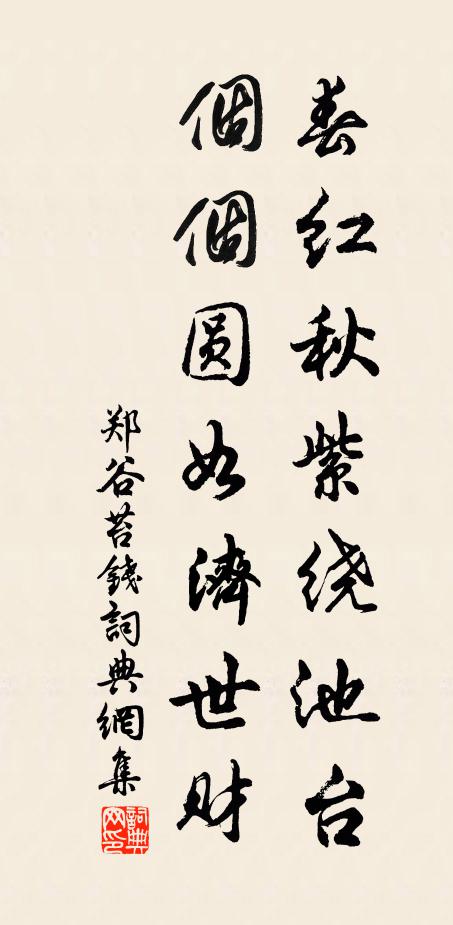 春红秋紫绕池台
個個圆如濟世财
郑谷苔錢詞典網集
詞典网印